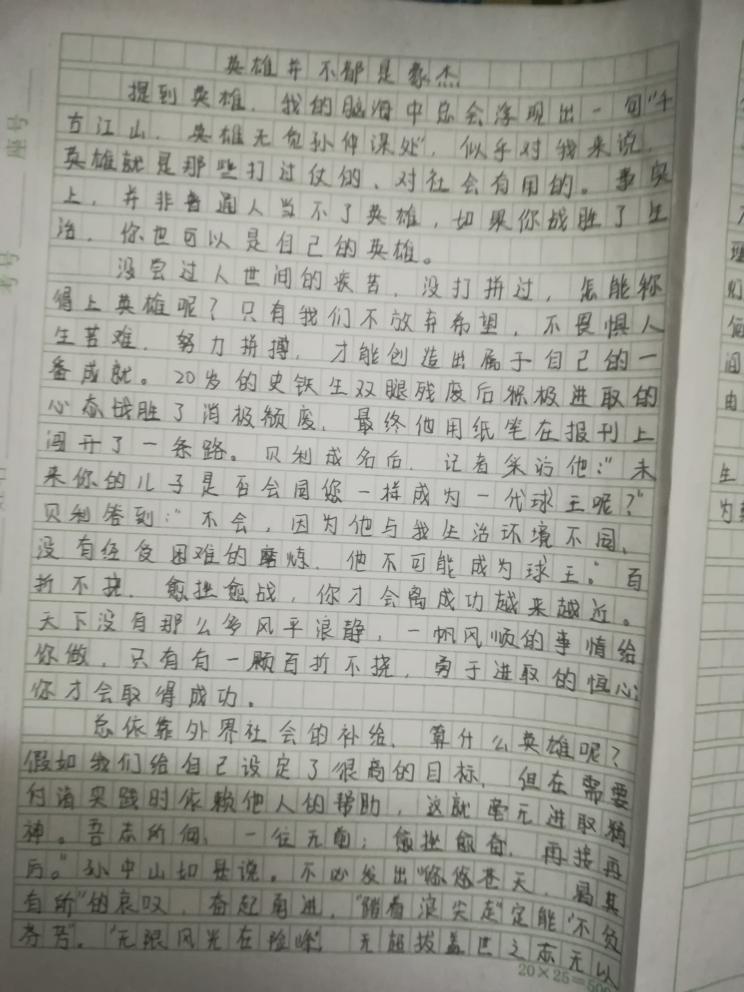 英雄并不都是豪杰
提到英雄，我的脑海中总会浮现出一句"千
古江山，英雄无觅孙仲谋处"，似乎对我来说，
英雄就是那些打过仗的、对社会有用的。事实
上，并非普通人当不了英雄，如果你战胜了生
活，你也可以是自己的英雄。
没尝过人世间的疾苦，没打拼过，怎能称
得上英雄呢？只有我们不放弃希望，不畏惧人
生苦难，努力拼搏，才能创造出属于自己的一
番成就。20岁的史铁生双腿残废后积极进取的
心态战胜了消极颓废，最终他用纸笔在报刊上
闯开了一条路。贝利成名后，记者采访他："未
来你的儿子是否会同您一样成为一代球王呢？"
贝利答到："不会，因为他与我生活环境不同，
没有经受困难的磨炼，他不可能成为球王。"百
折不挠，愈挫愈战，你才会离成功越来越近。
天下没有那么多风平浪静，一帆风顺的事情给
你做，只有有一颗百折不挠，勇于进取的恒心，
你才会取得成功。
总依靠外界社会的补给，算什么英雄呢？
假如我们给自己设定了很高的目标，但在需要
付诸实践时依赖他人的帮助，这就毫无进取精
神。吾志所向，一往无前；愈挫愈奋，再接再
厉。"孙中山如是说。不必发出"悠悠苍天，曷其
有所"的哀叹，奋起勇进，"踏着浪尖走"定能"不负
芬芳"。"无限风光在险峰"，无超拔盖世之志无以
20×25=500
座号
考号